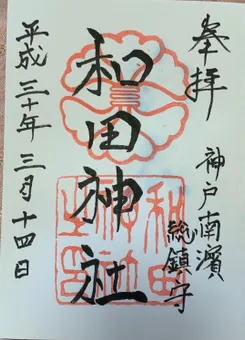 奉拝
神戸南濱
総鎮守
和田神社
平成三十年三月十四日